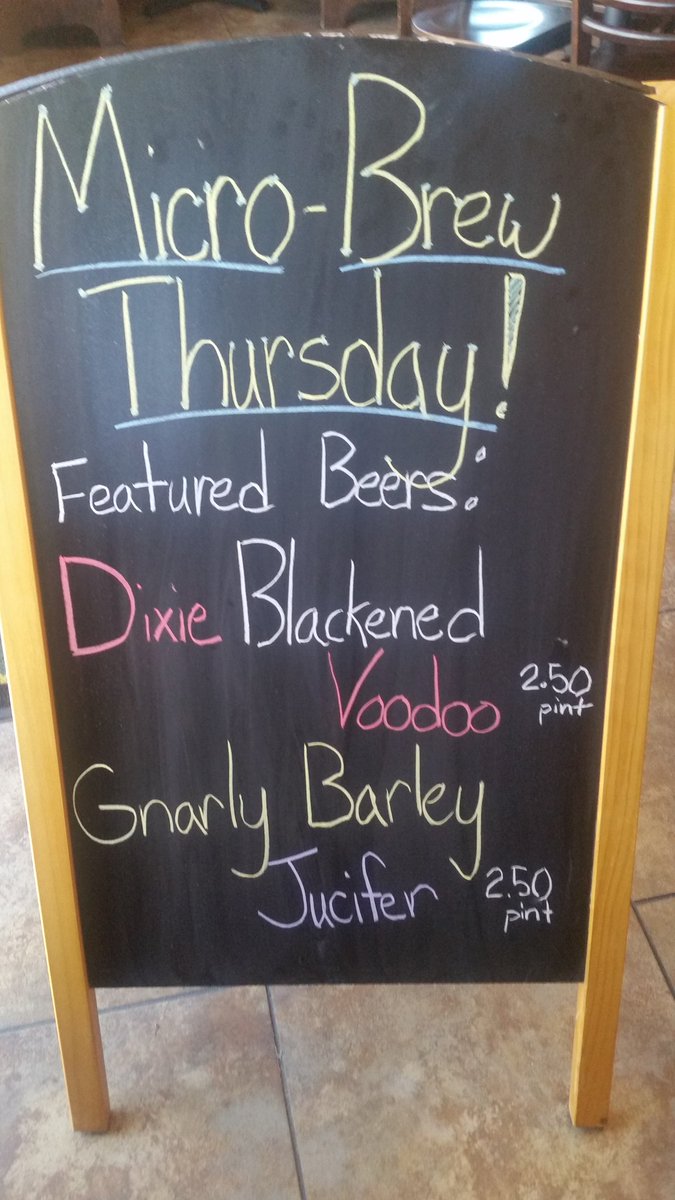 Micro-Brew
Thursday!
Featured Beers:
Dixie Blackened
Voodoo 2.50
pint
Gnarly Barley
Jucifer 2.50
pint